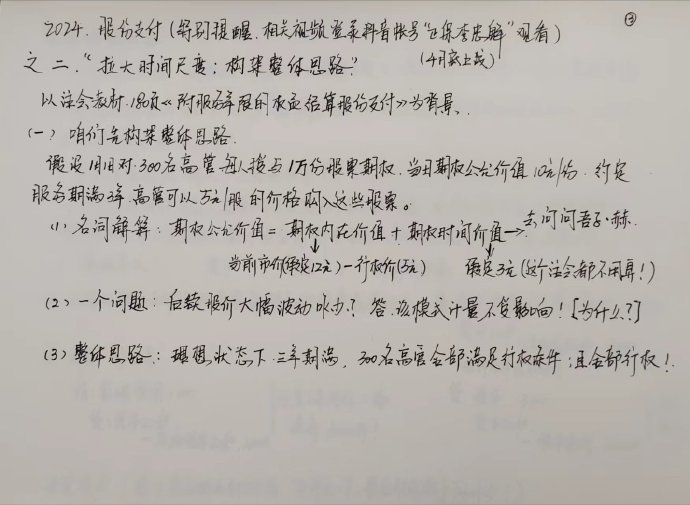 ③
2024. 股份支付(特别提醒.相关视频登录抖音帐号"正保李忠解"观看)
(4月底上线)
之二."拉大时间尺度;构架整体思路."
以注会教材.180页《附服务年限的权益结算股份支付》为背景.
(一)咱们先构架整体思路.
假设1月1日对.300名高管每人授与1万份股票期权.当日期权公允价值10元/份.约定
服务期满3年.高管可以5元/股的价格购入这些股票。
(1)名词解释:期权公允价值=期权内在价值+期权时间价值→去问问吾子·赫.
当前市价(假定12元)-行权价(5元) 假定3元(这个注会都不用算!)
(2)一个问题:后续股价大幅波动咋办?答.该模式计量不受影响![为什么?]
(3)整体思路:理想状态下.三年期满,300名高管全部满足行权条件;且全部行权!